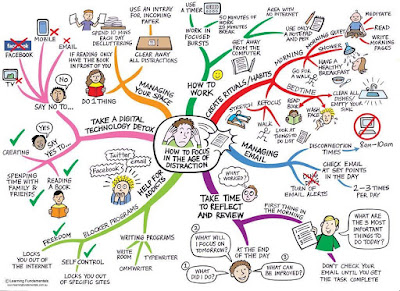 HOW TO FOCUS
IN THE AGE OF
DISTRACTION
HOW TO
WORK
USE A TIMER
WORK IN
FOCUSED
BURSTS
50 MINUTES OF
WORK
10 MINUTES
BREAK
GET AWAY
FROM THE
COMPUTER
AREA WITH
NO INTERNET
USE ONLY
A NOTEPAD
AND PEN
CREATE RITUALS/HABITS
MORNING
MORNING QUIET
MEDITATE
READ
WRITE
MORNING
PAGES
GO FOR
A WALK
HAVE A
HEALTHY
BREAKFAST
BEDTIME
READ
BOOK
WASH
FACE
CLEAN ALL
DISHES/
EMPTY YOUR
SINK
REFOCUS
STRETCH
WALK
LOOK AT
TO DO
LIST
MANAGING
EMAIL
DISCONNECTION
TIMES
8am-10am
CHECK EMAIL
AT SET POINTS
IN THE DAY
2-3 TIMES
PER DAY
TURN OF
EMAIL ALERTS
TAKE TIME
TO REFLECT
AND REVIEW
WHAT
WORKED?
FIRST THING IN
THE MORNING
WHAT ARE THE
3 MOST
IMPORTANT
THINGS TO
DO TODAY?
DON'T CHECK YOUR
EMAIL UNTIL YOU GET
THE TASK COMPLETE
AT THE END OF
THE DAY
WHAT WILL
I FOCUS ON
TOMORROW?
WHAT
DID I DO?
WHAT CAN BE
IMPROVED?
HELP FOR
ADDICTS
Twitter
email
Facebook
BLOCKER PROGRAMS
FREEDOM
LOCKS YOU OUT
OF THE INTERNET
SELF CONTROL
LOCKS YOU OUT
OF SPECIFIC SITES
WRITING PROGRAMS
WRITE
ROOM
TYPEWRITER
OMMWRITER
TAKE A DIGITAL
TECHNOLOGY DETOX
SAY NO TO...
No
FACEBOOK
MOBILE
EMAIL
TV
Yes
SAY
YES TO...
CREATING
SPENDING
TIME WITH
FAMILY &
FRIENDS
READING
A BOOK
MANAGING
YOUR SPACE
DO 1 THING
IF READING ONLY
HAVE THE BOOK
IN FRONT OF YOU
CLEAR AWAY
ALL DISTRACTIONS
SPEND 10 MINS
EACH DAY
DECLUTTERING
USE AN INTRAY
FOR INCOMING
PAPER
© Learning Fundamentals